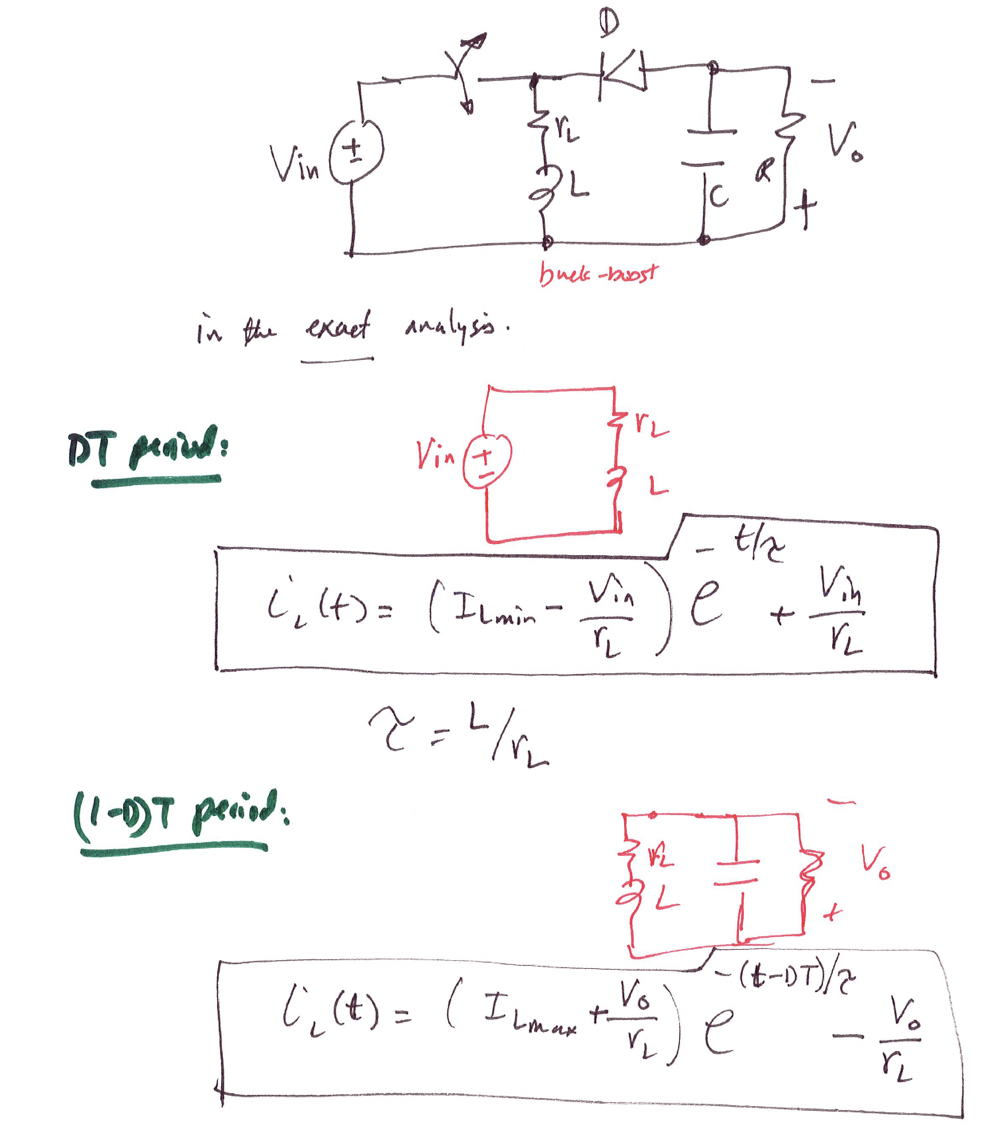 D
Vin ± rL L C R − Vo +
buck-boost
in the exact analysis.
DT period:
Vin ± rL L
iL(t) = (ILmin − Vin/rL) e^(−t/τ) + Vin/rL
τ = L/rL
(1-D)T period:
rL L − Vo +
iL(t) = (ILmax + Vo/rL) e^(−(t−DT)/τ) − Vo/rL